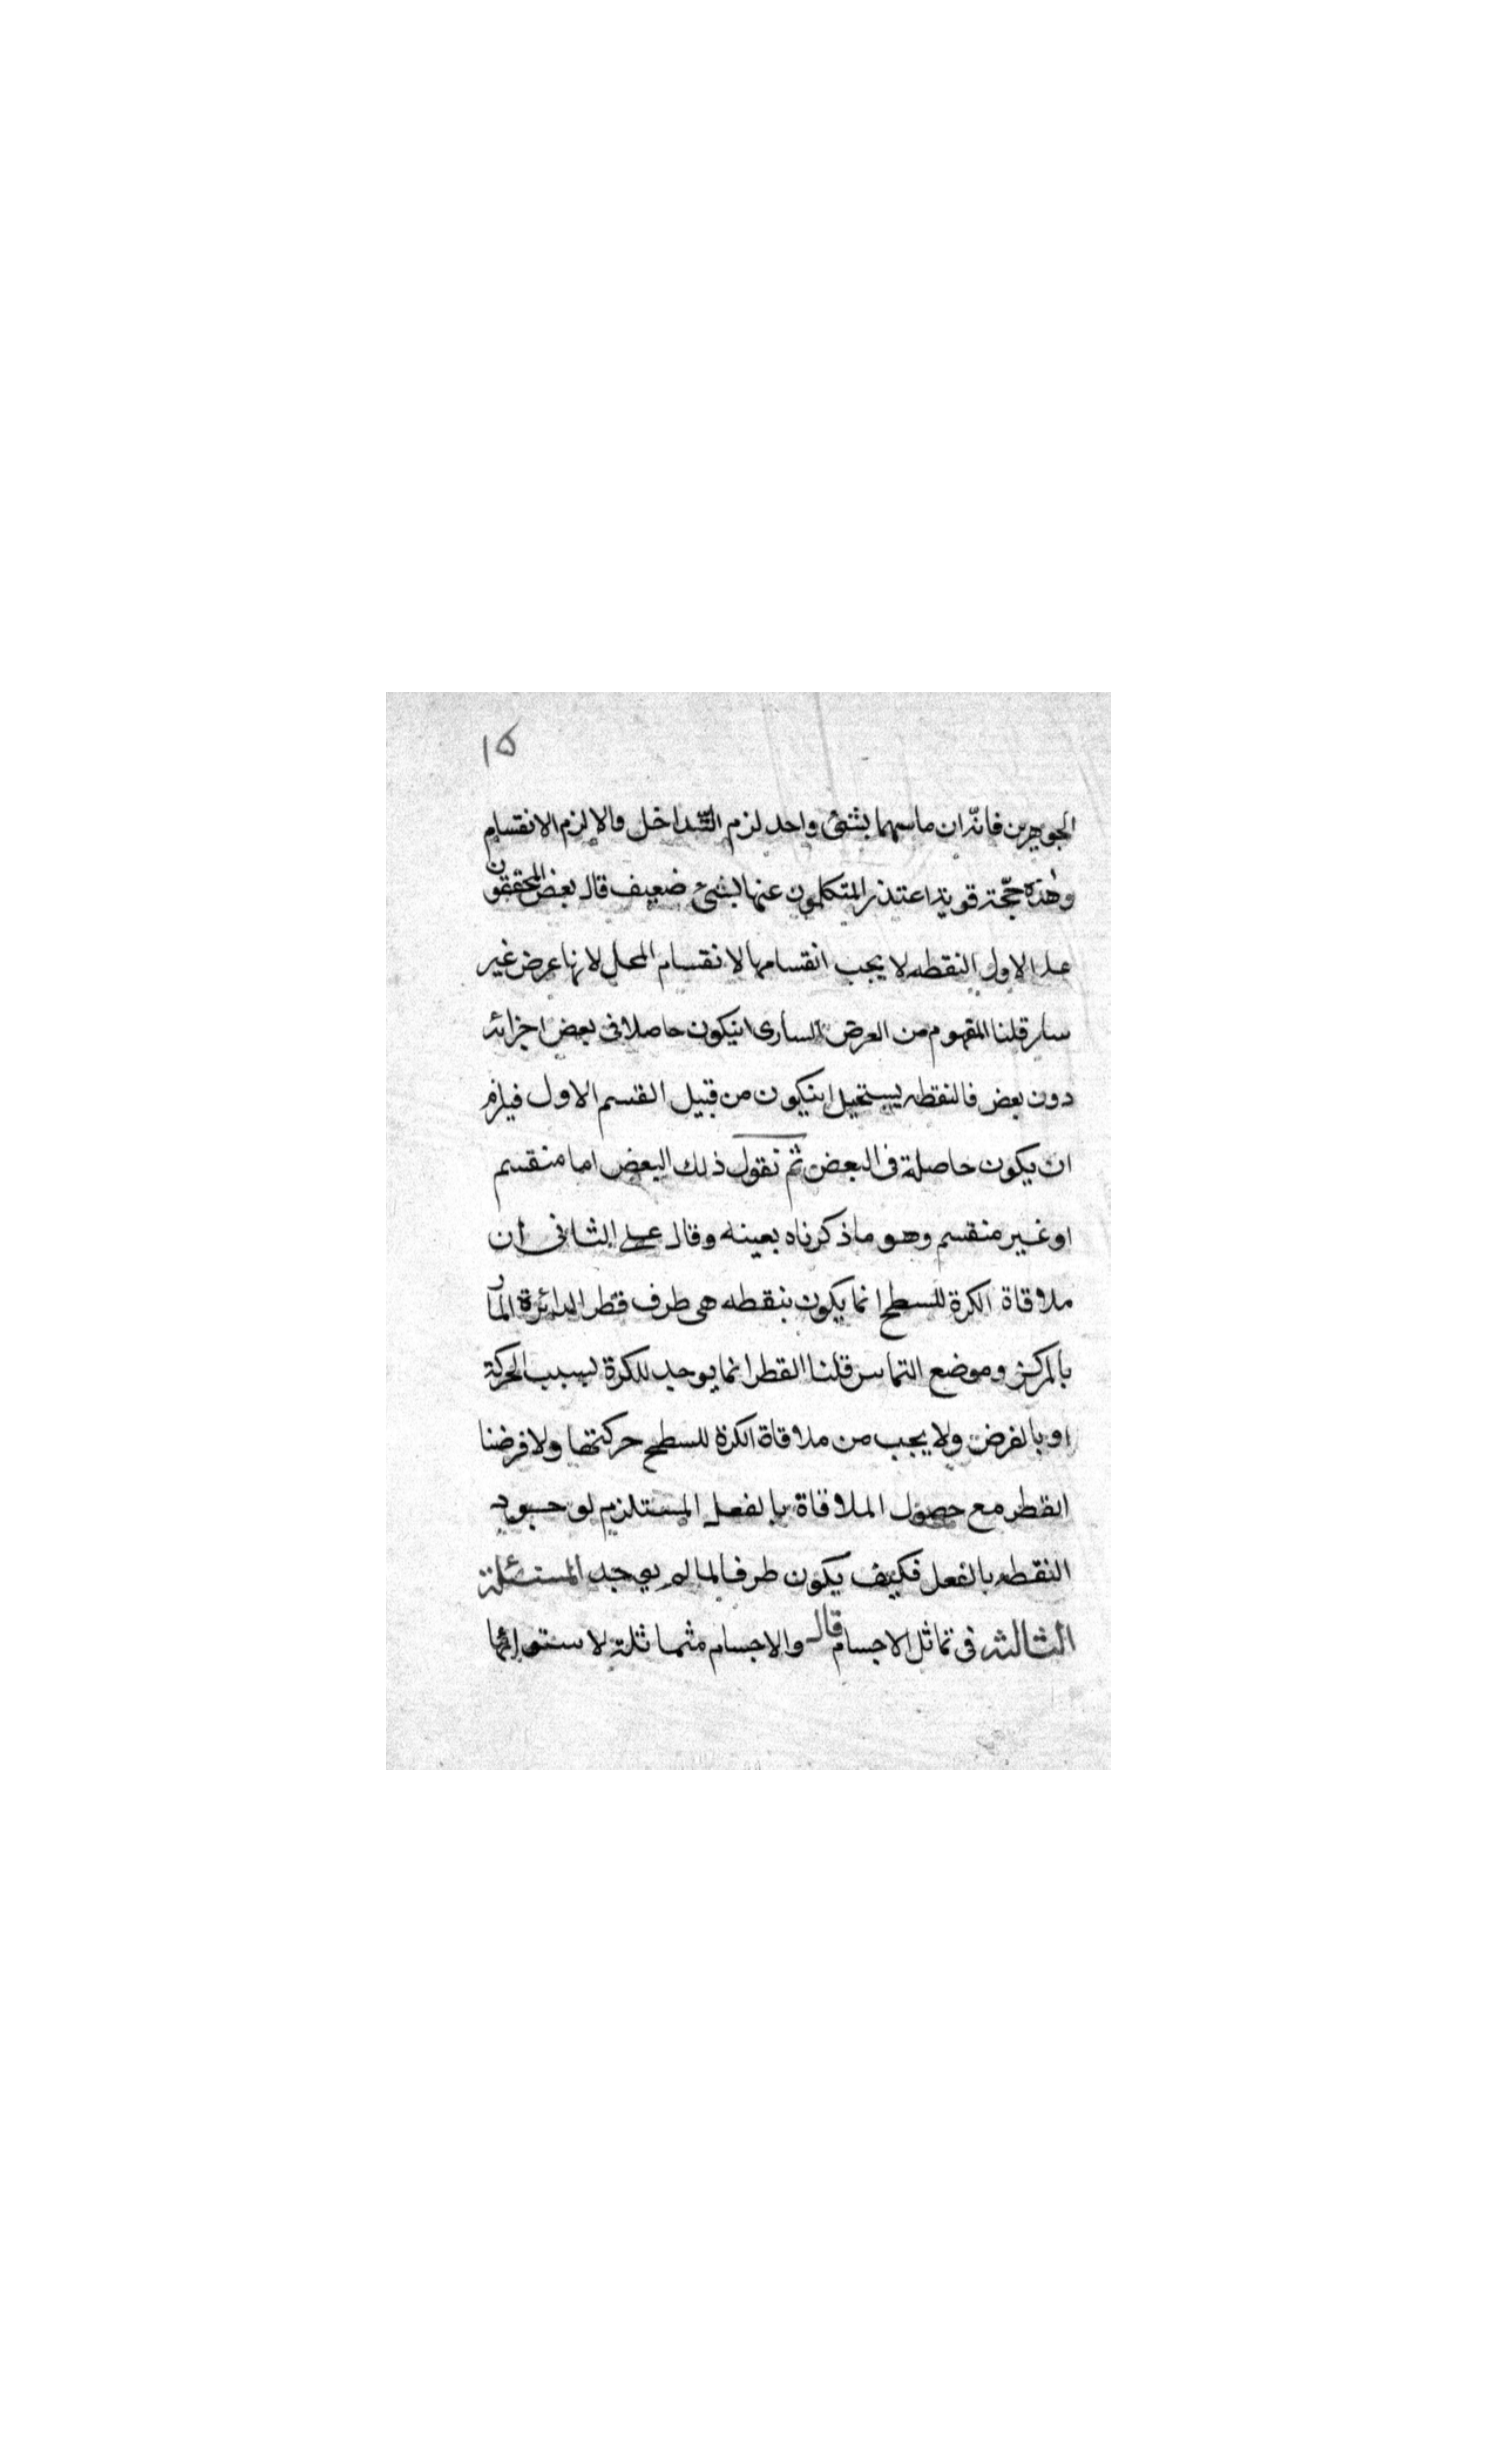 ١٥
الجوهرين فانّه ان ماسهما بشئ واحد لزم التداخل والا لزم الانقسام
وهذه حجّة قوية اعتذر المتكلمون عنها بشئ ضعيف قال بعض المحققون
على الاول النقطه لا يجب انقسامها لانقسام المحل لانها عرض غير
سار قلنا المفهوم من العرض السارى انيكون حاصلا فى بعض اجزائه
دون بعض فالنقطه يستحيل انيكون من قبيل القسم الاول فيلزم
ان يكون حاصلة فى البعض ثم نقول ذلك البعض اما منقسم
او غير منقسم وهو ما ذكرناه بعينه وقال على الثانى ان
ملاقاة الكرة للسطح انما يكون بنقطه هى طرف قطر الدائرة المار
بالمركز وموضع التماس قلنا القطر انما يوجد للكرة بسبب الحركة
او بالفرض ولا يجب من ملاقاة الكرة للسطح حركتها ولا فرضنا
القطر مع حصول الملاقاة بالفعل المستلزم لوجود
النقطه بالفعل فكيف يكون طرفا لما لم يوجد المسئلة
الثالثه فى تماثل الاجسام قال والاجسام متماثلة لاستوائها